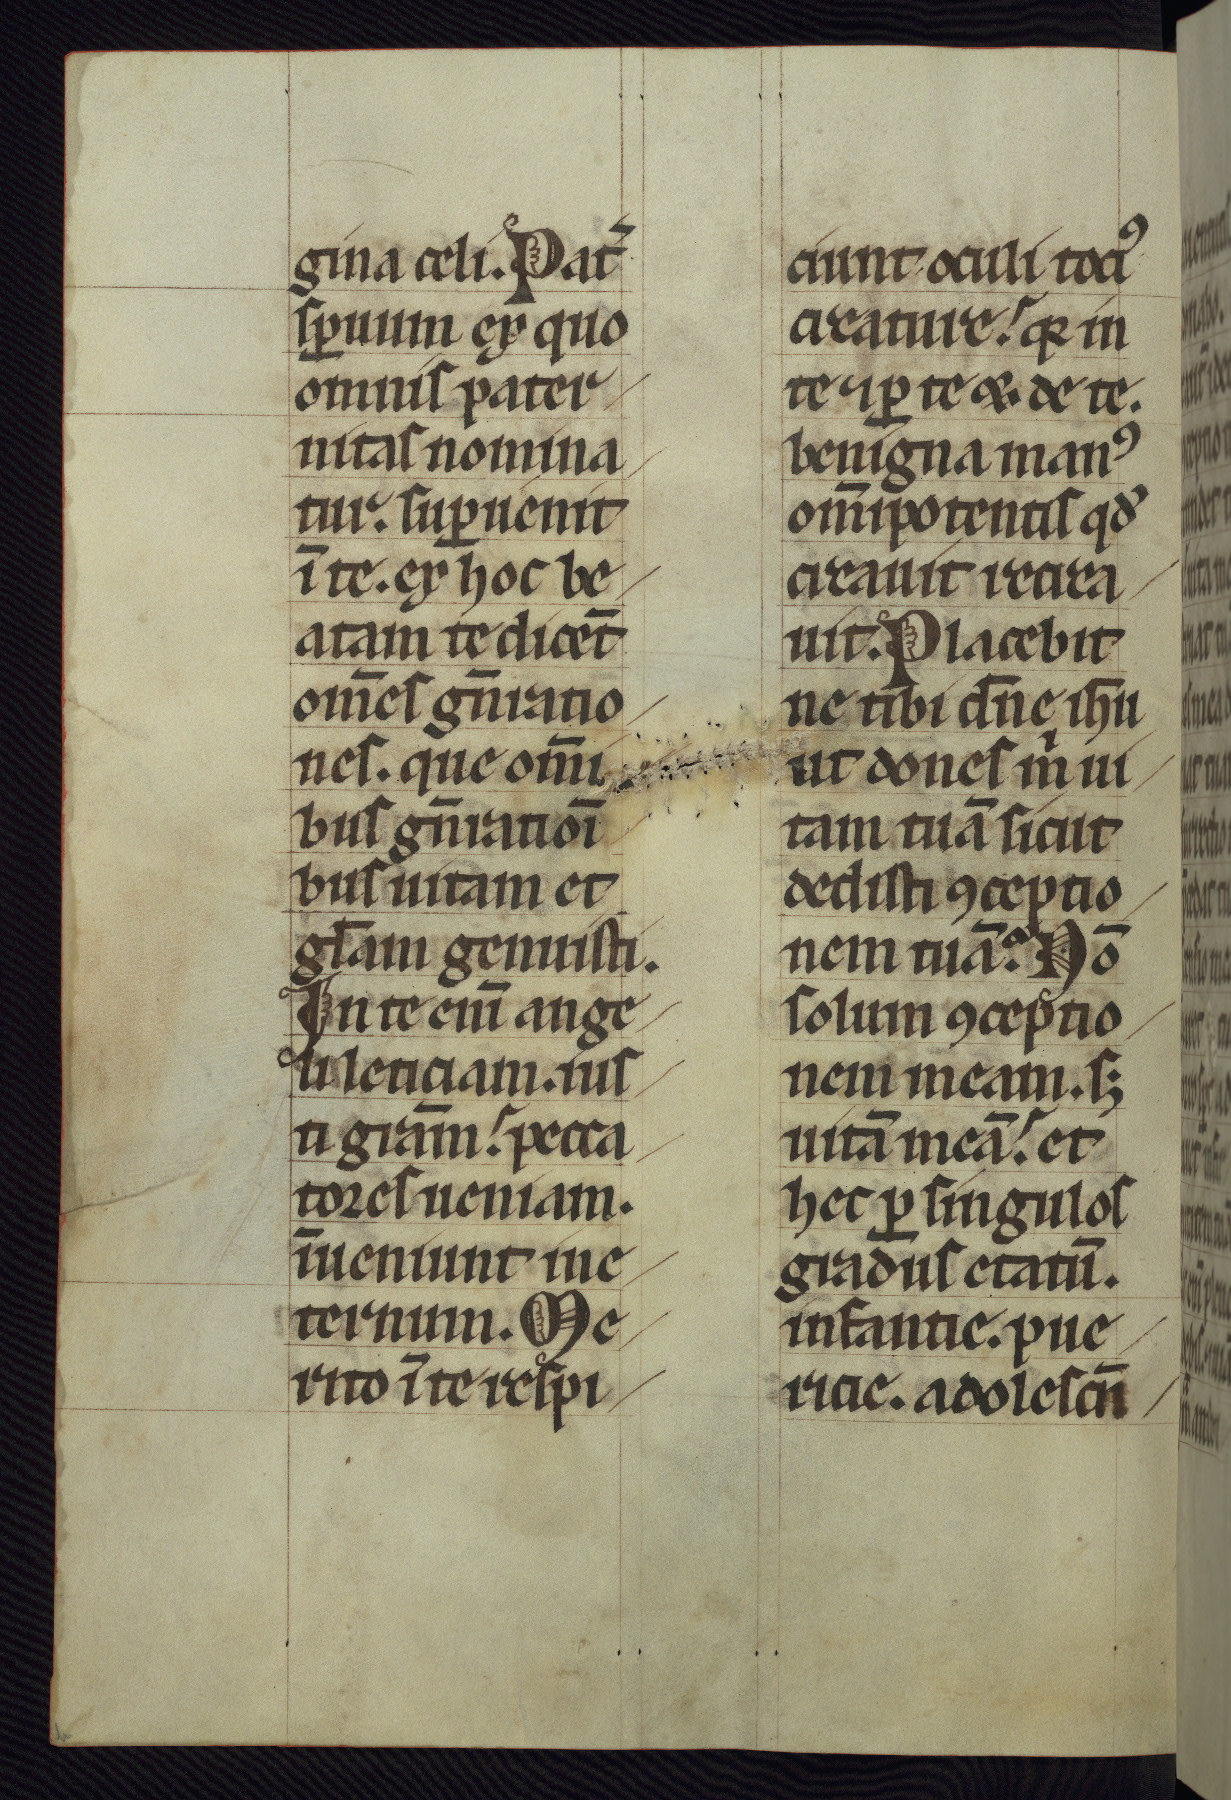 gina celi. Pat᷑
sp̲uum ex quo
omnis pater
nitas nomina
tur. sup̲uenit
ī te. ex hoc be
atam te dicēt
om̄es gn̄ratio
nes. que om̄i
bus gn̄ratioī
bus uitam et
gl̄am genuisti.
In te enī ange
li leticiam. ius
ti gr̄am. pecca
tores ueniam.
īueniunt ine
ternum. Me
rito ī te respi
ciunt oculi tociꝰ
creature. qꝛ in
te ⁊ ꝑ te ⁊ de te.
benigna manꝰ
om̄ipotentis qd̾
creauit recrea
uit. Placebit
ne tibi dn̄e ih̄u
ut dones m̍ ui
tam tuā sicut
dedisti ꝯceptio
nem tuā. Nō
solum ꝯceptio
nem meam. sꝫ
uitā meā. et
hec ꝑ singulos
gradus etatū.
infantie. pue
ricie. adolescn̄